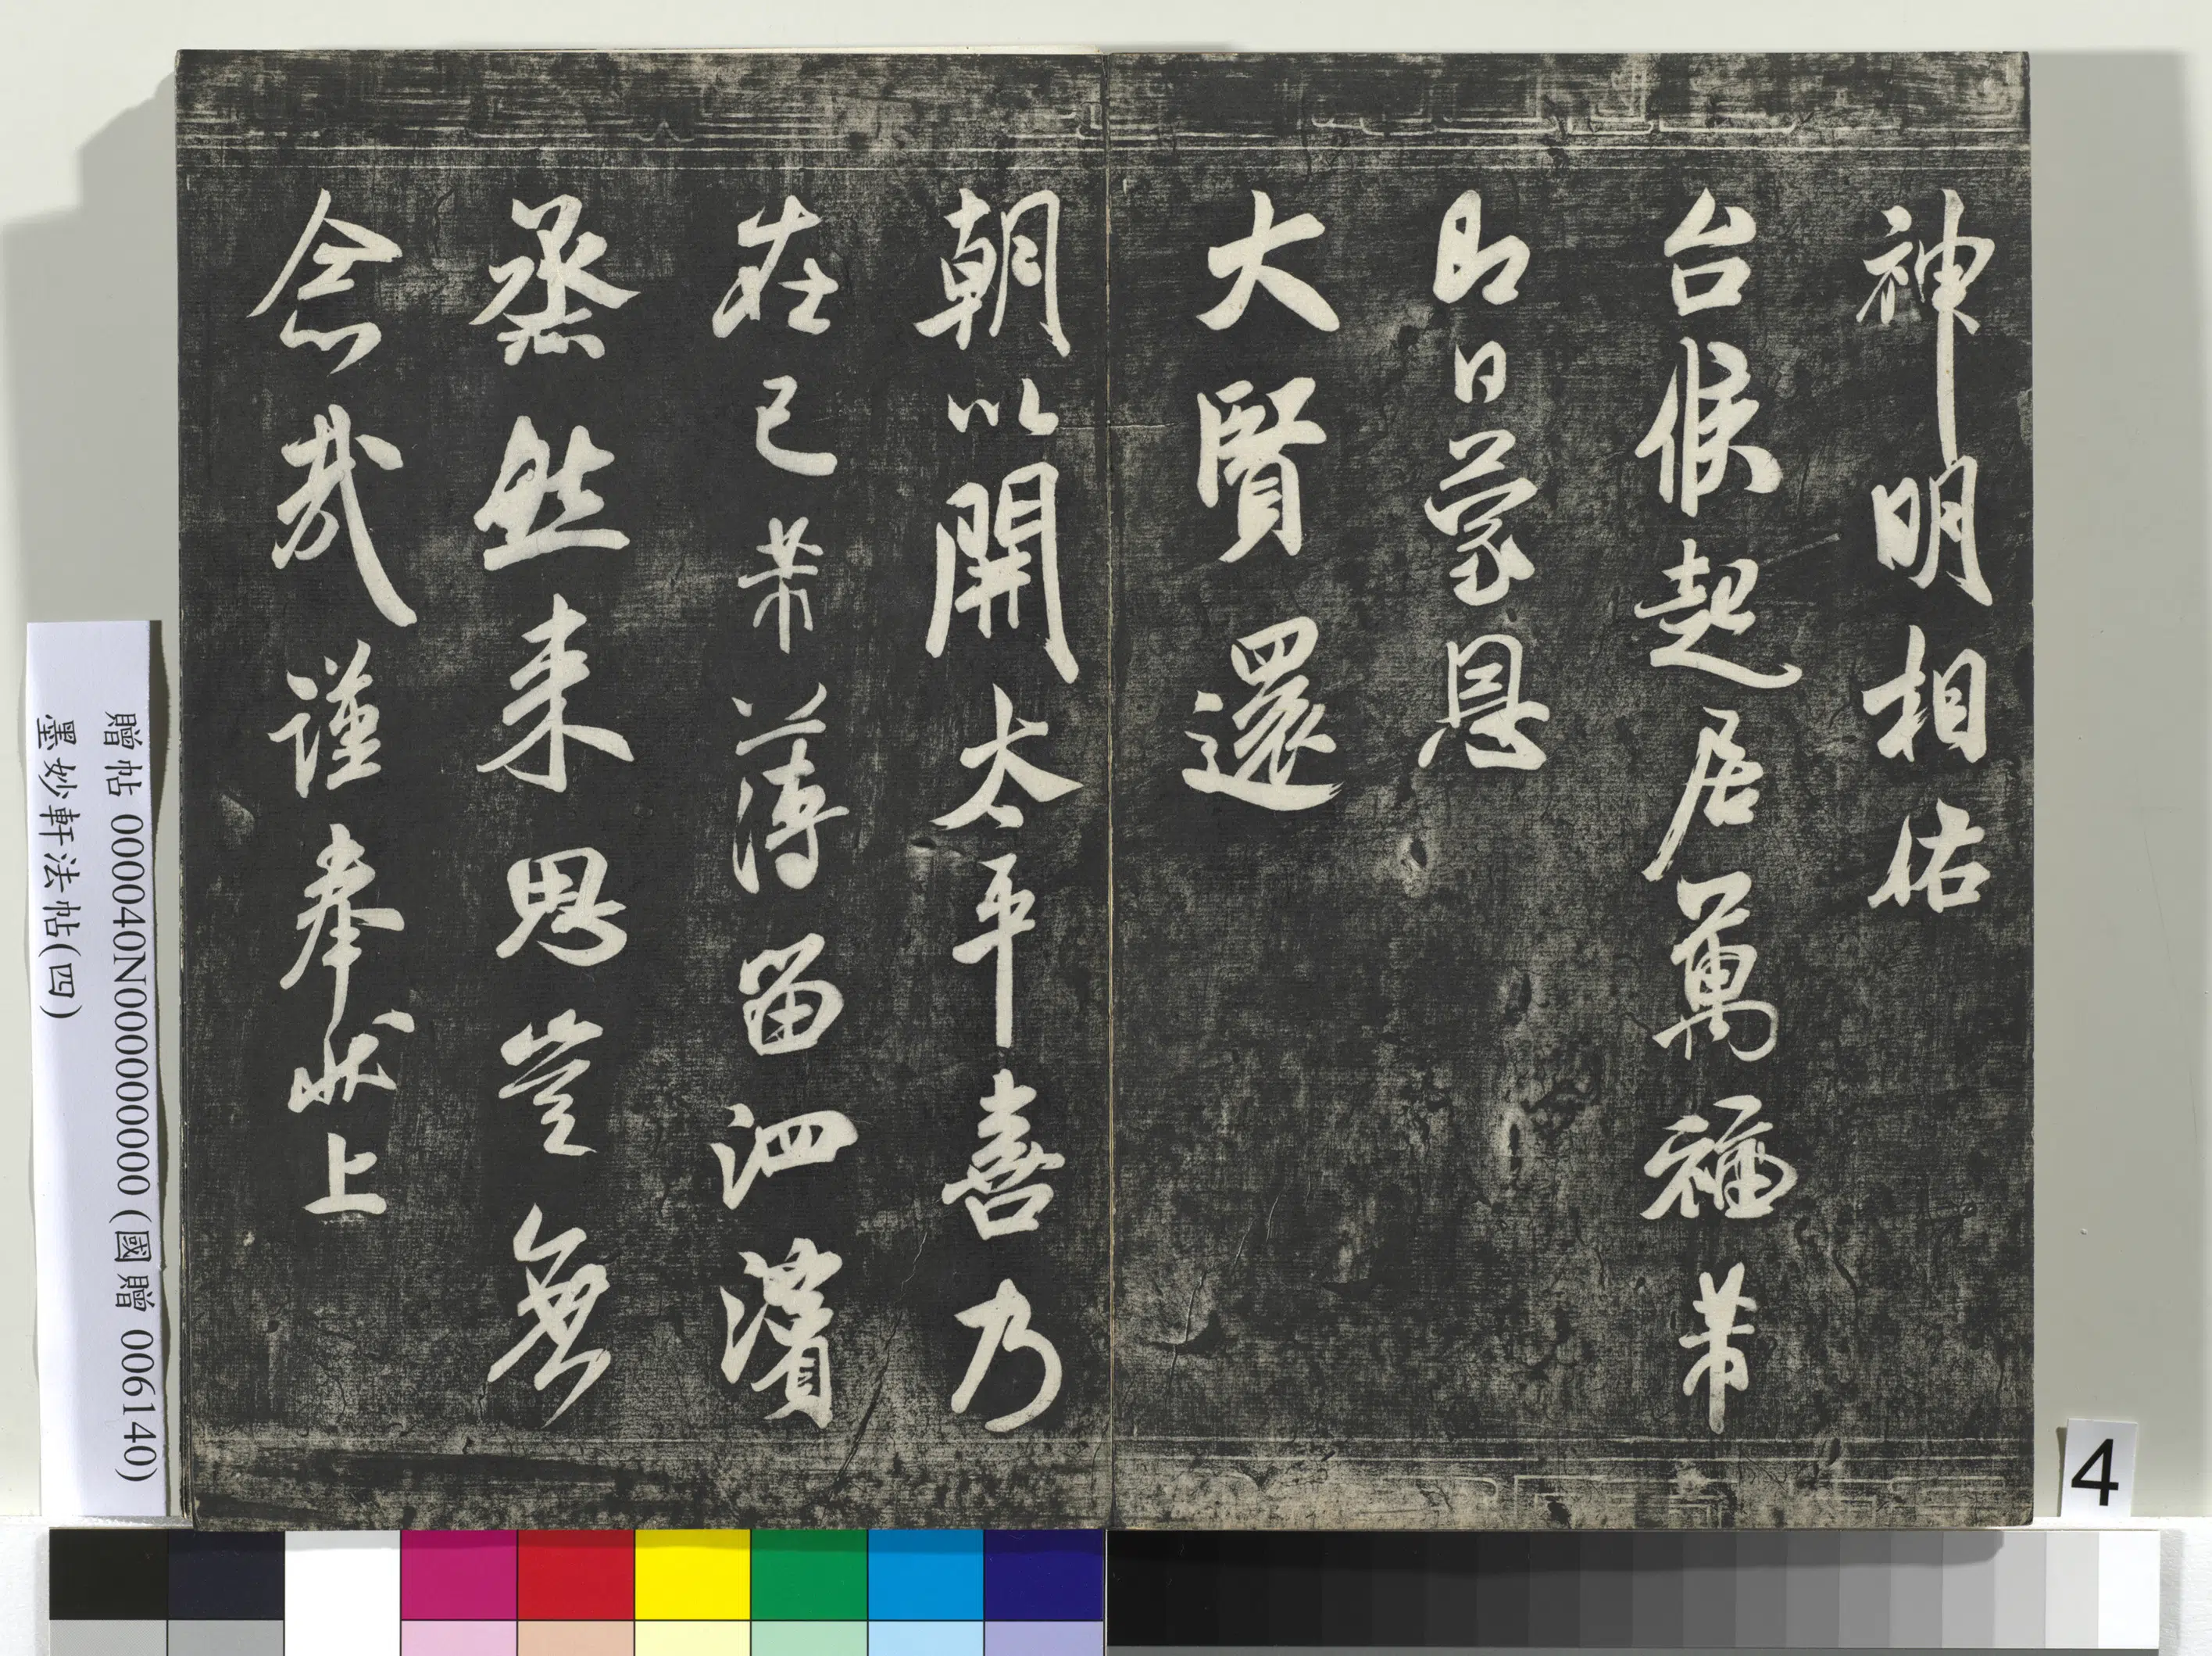 神明相佑
台候起居萬福芾
即日蒙恩
大賢還
朝以開太平喜乃
在已芾薄留泗濱
烝然来思豈無
念哉謹奉狀上
贈帖 000040N000000000 (國贈 006140)
墨妙軒法帖(四)
4